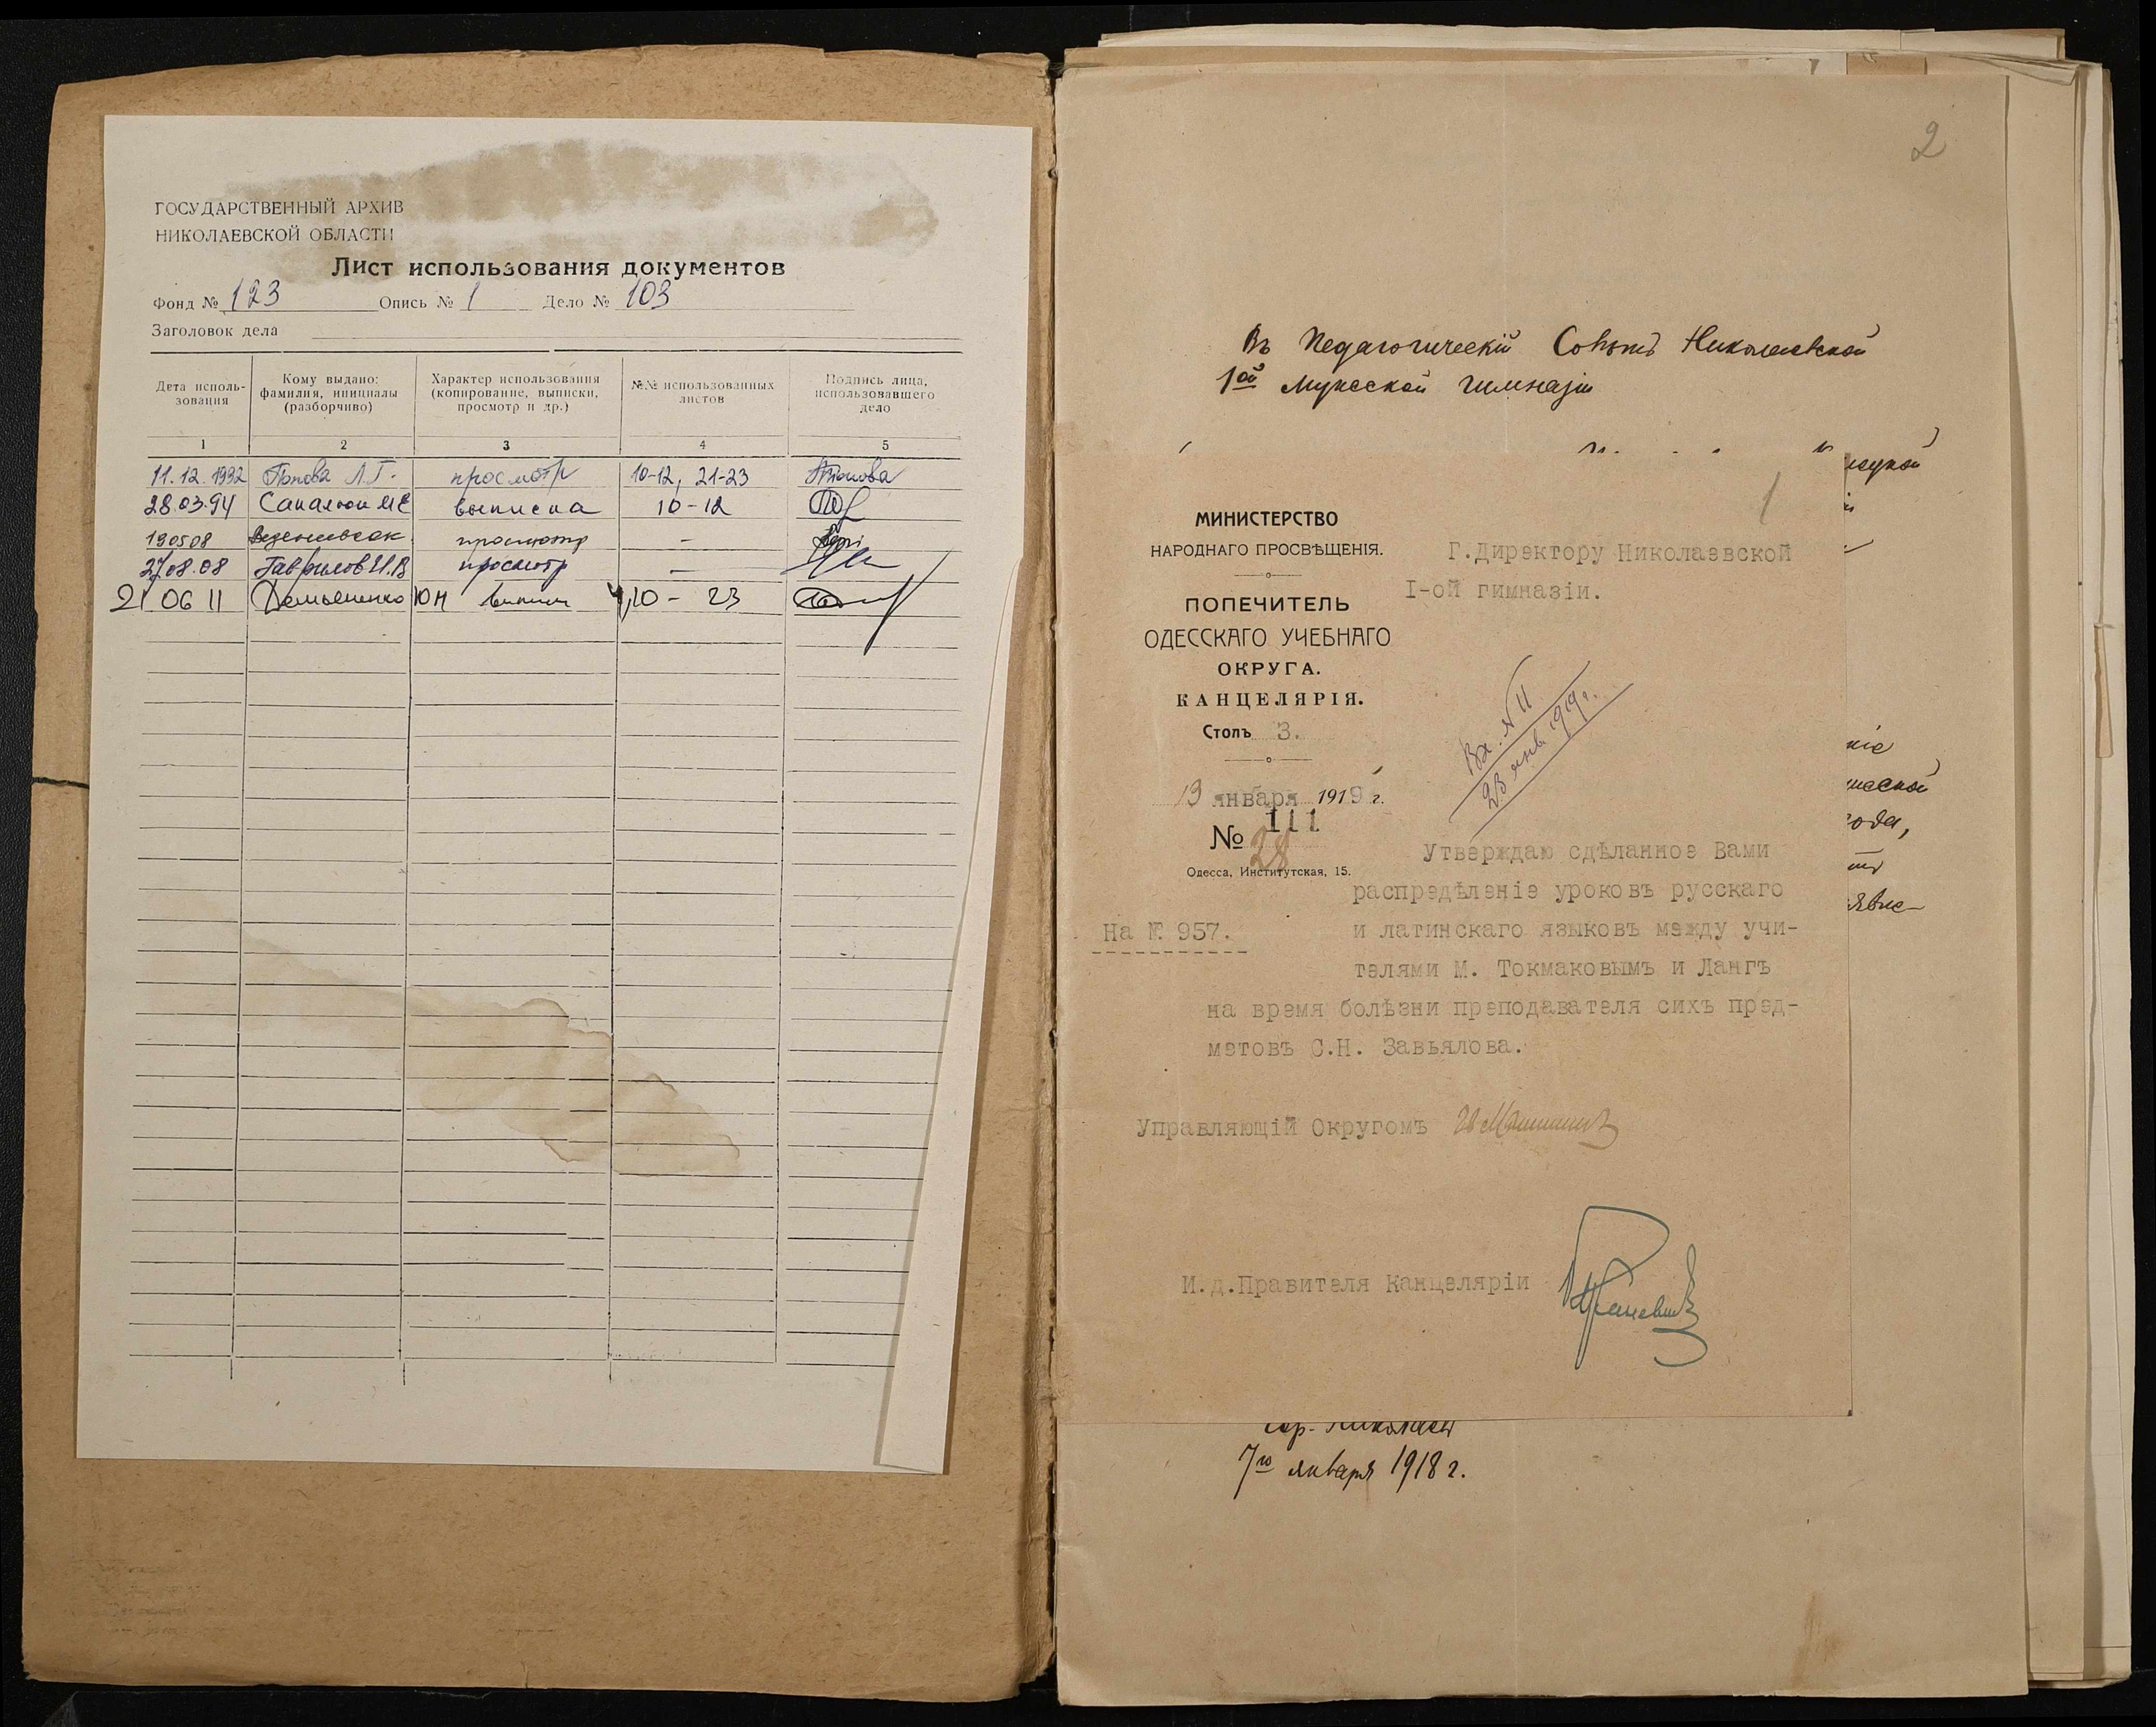 ГОСУДАРСТВЕННЫЙ АРХИВ
НИКОЛАЕВСКОЙ ОБЛАСТИ
Лист использования документов
Фонд № 123 Опись № 1 Дело № 103
Заголовок дела
Дата исполь-
зования
Кому выдано:
фамилия, инициалы
(разборчиво)
Характер использования
(копирование, выписки,
просмотр и др.)
№№ использованных
листов
Подпись лица,
использовавшего
дело
1 2 3 4 5
11.12.1992 Попова Л.Г. просмотр 10-12, 21-23
28.03.94 выписка 10-12
190508 просмотр –
27.08.08 Гаврилов И.В просмотр –
21 06 11 Демьяненко ЮН 10 - 23
2
Въ Педагогическій Совѣтъ Николаевской
1ой Мужской гимназіи
1
МИНИСТЕРСТВО
НАРОДНАГО ПРОСВѢЩЕНІЯ.
ПОПЕЧИТЕЛЬ
ОДЕССКАГО УЧЕБНАГО
ОКРУГА.
КАНЦЕЛЯРІЯ.
Столъ 3.
13 января 1919 г.
№ 111
28
Одесса, Институтская, 15.
На № 957.
Г.Директору Николаевской
I-ой гимназіи.
Вх. № 11
23 янв. 1919 г.
Утверждаю сдѣланное Вами
распредѣленіе уроковъ русскаго
и латинскаго языковъ между учи-
телями М. Токмаковымъ и Лангъ
на время болѣзни преподавателя сихъ пред-
метовъ С.Н. Завьялова.
Управляющій Округомъ
И.д.Правителя Канцеляріи
гор. Николаевъ
7го января 1918 г.